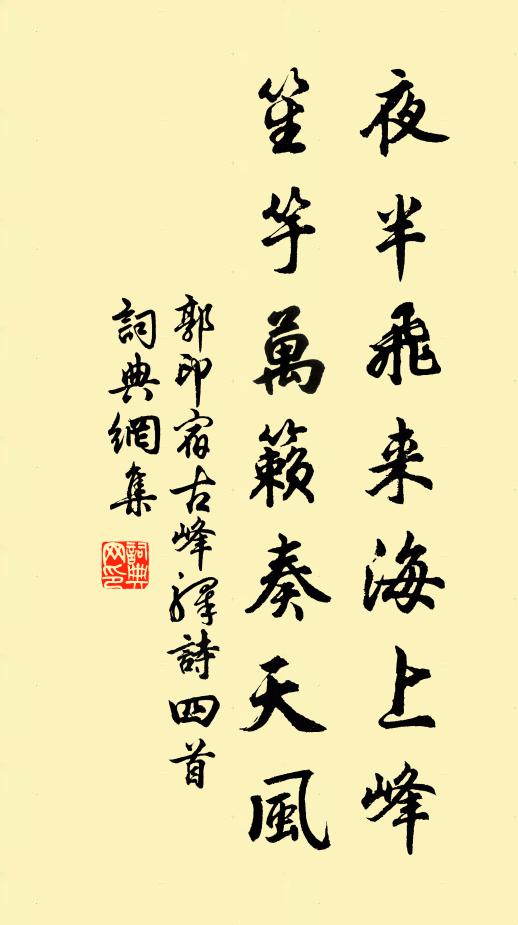 夜半飛来海上峰
笙竽萬籟奏天風
郭印宿古峰驛詩四首
詞典網集
詞典網印